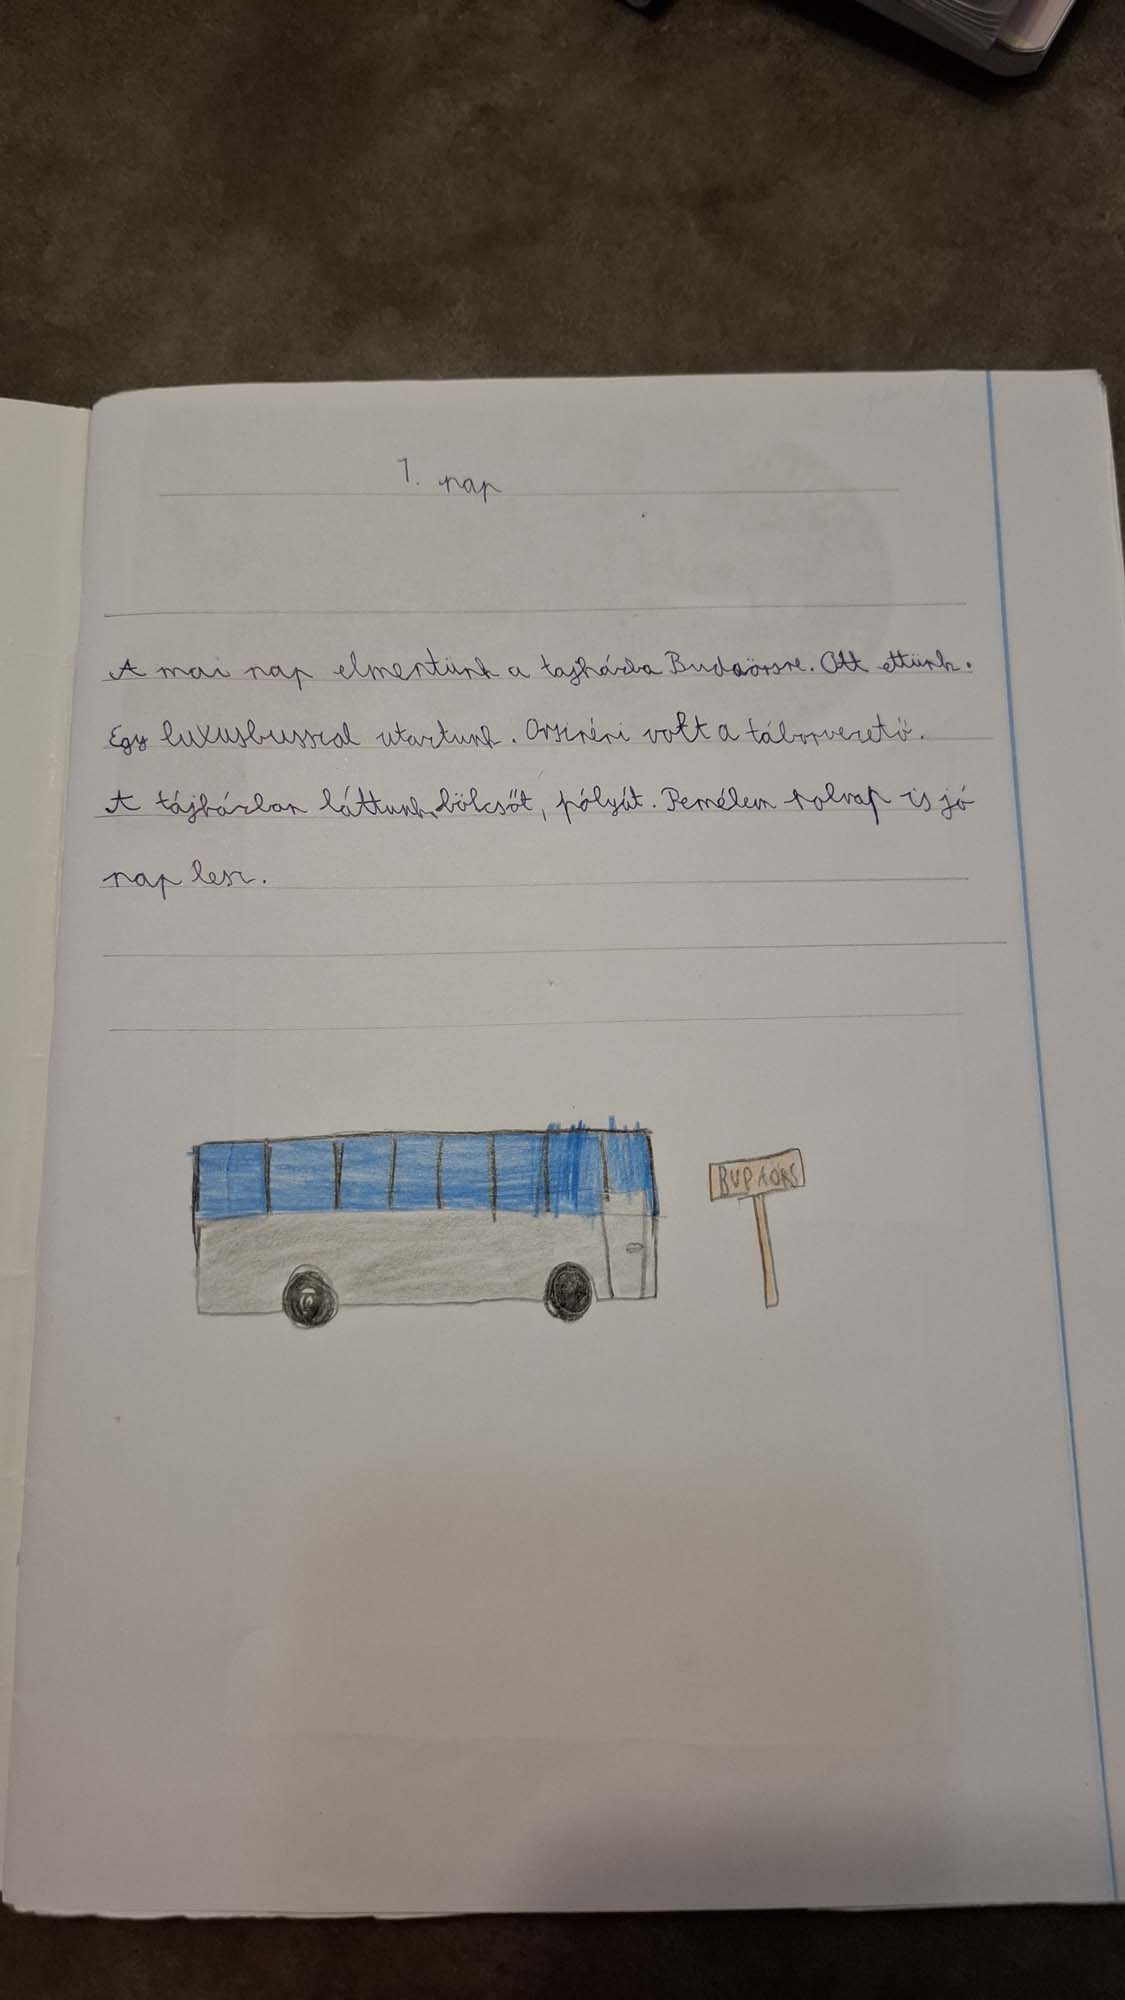 1. nap
A mai nap elmentünk a tajházba Budaörsre. Ott ettünk.
Egy luxusbusszal utaztunk. Orsinéni volt a táborvezető.
A tájházban láttunk bölcsőt, pólyát. Remélem holnap is jó
nap lesz.
BUDAÖRS